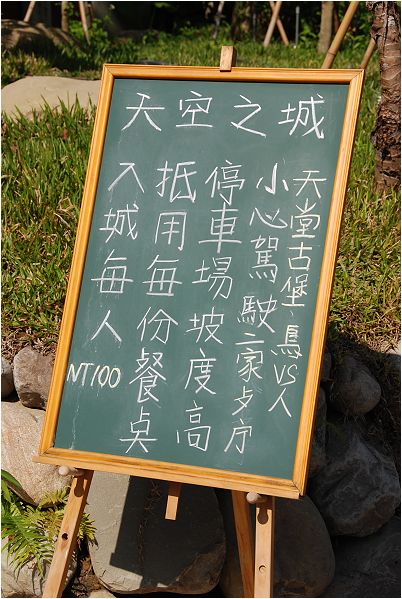 天空之城
入城每人NT100
抵用每份餐桌
停車場坡度高
小心駕駛二家歺庁
天堂古堡、鳥VS人